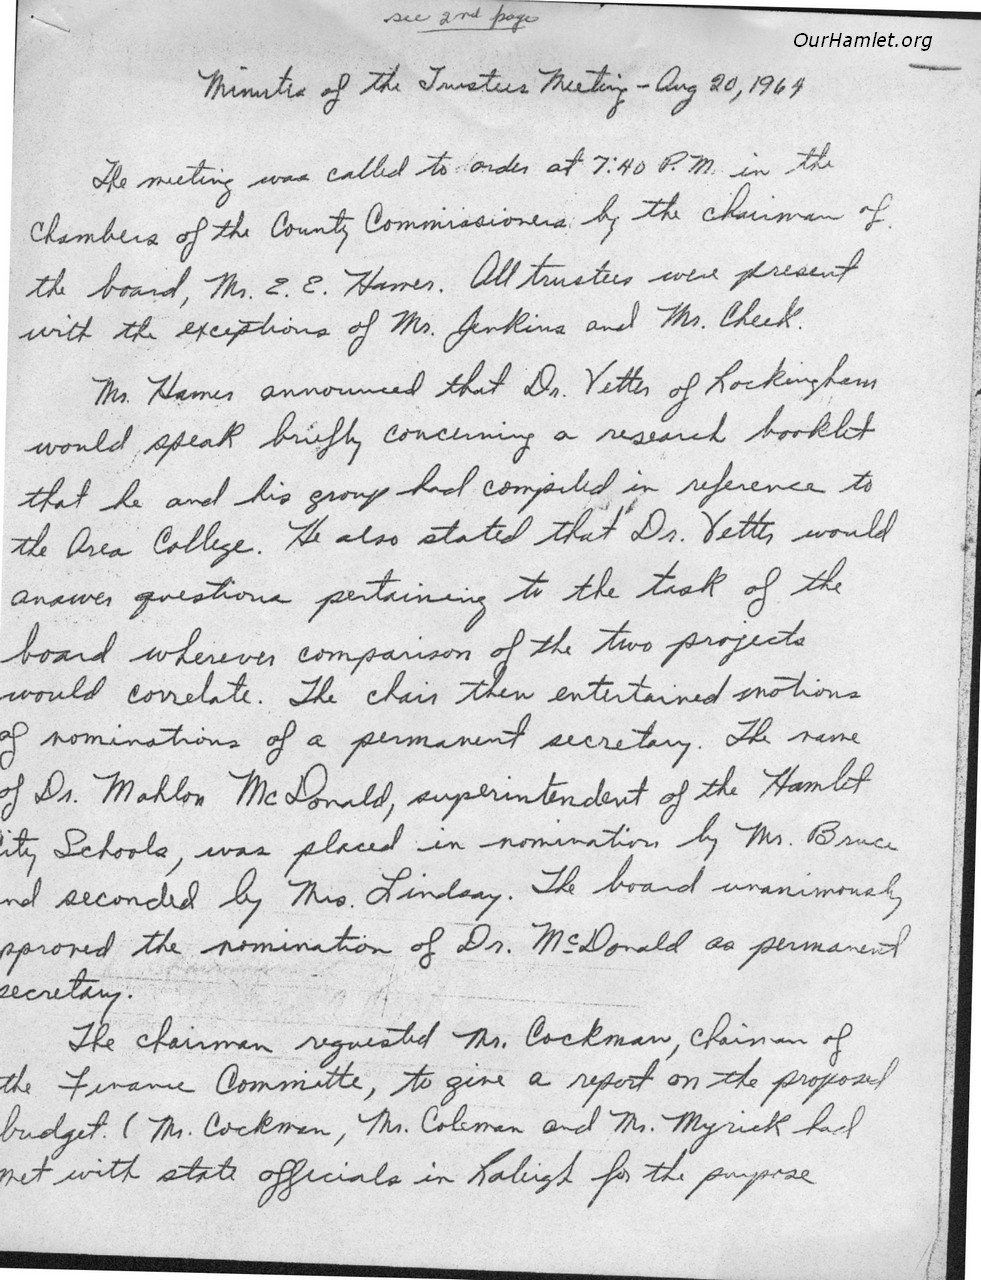 see 2nd page
OurHamlet.org
Minutes of the Trustees Meeting - Aug 20, 1964
The meeting was called to order at 7:40 P.M. in the
chambers of the County Commissioners by the chairman of
the board, Mr. E. E. Hames. All trustees were present
with the exceptions of Mr. Jenkins and Mr. Cheek.
Mr. Hames announced that Dr. Vetter of Rockingham
would speak briefly concerning a research booklet
that he and his group had compiled in reference to
the Area College. He also stated that Dr. Vetter would
answer questions pertaining to the task of the
board wherever comparison of the two projects
would correlate. The chair then entertained motions
of nominations of a permanent secretary. The name
of Dr. Mahlon McDonald, superintendent of the Hamlet
ity Schools, was placed in nomination by Mr. Bruce
nd seconded by Mrs. Lindsay. The board unanimously
pproved the nomination of Dr. McDonald as permanent
secretary.
The chairman requested Mr. Cockman, chairman of
the Finance Committe, to give a report on the proposed
budget. (Mr. Cockman, Mr. Coleman and Mr. Myrick had
met with state officials in Raleigh for the purpose